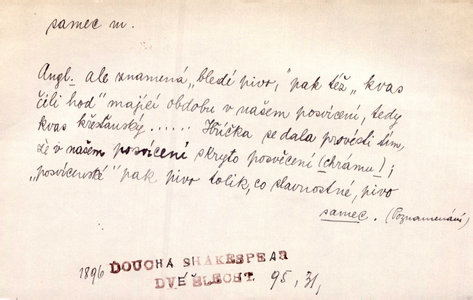 samec m.
Angl. ale znamená „bledé pivo," pak též „kvas
čili hod" majíc obdobu v našem posvícení, tedy
kvas křesťanský...... Hříčka se dala provésti tím,
že v našem posvícení skryto posvěcení (chrámu);
„posvícenské" pak pivo tolik, co slavnostné, pivo
samec. (Poznamenání)
1896 DOUCHA SHAKESPEAR
DVĚ ŠLECHT. 95, 31,